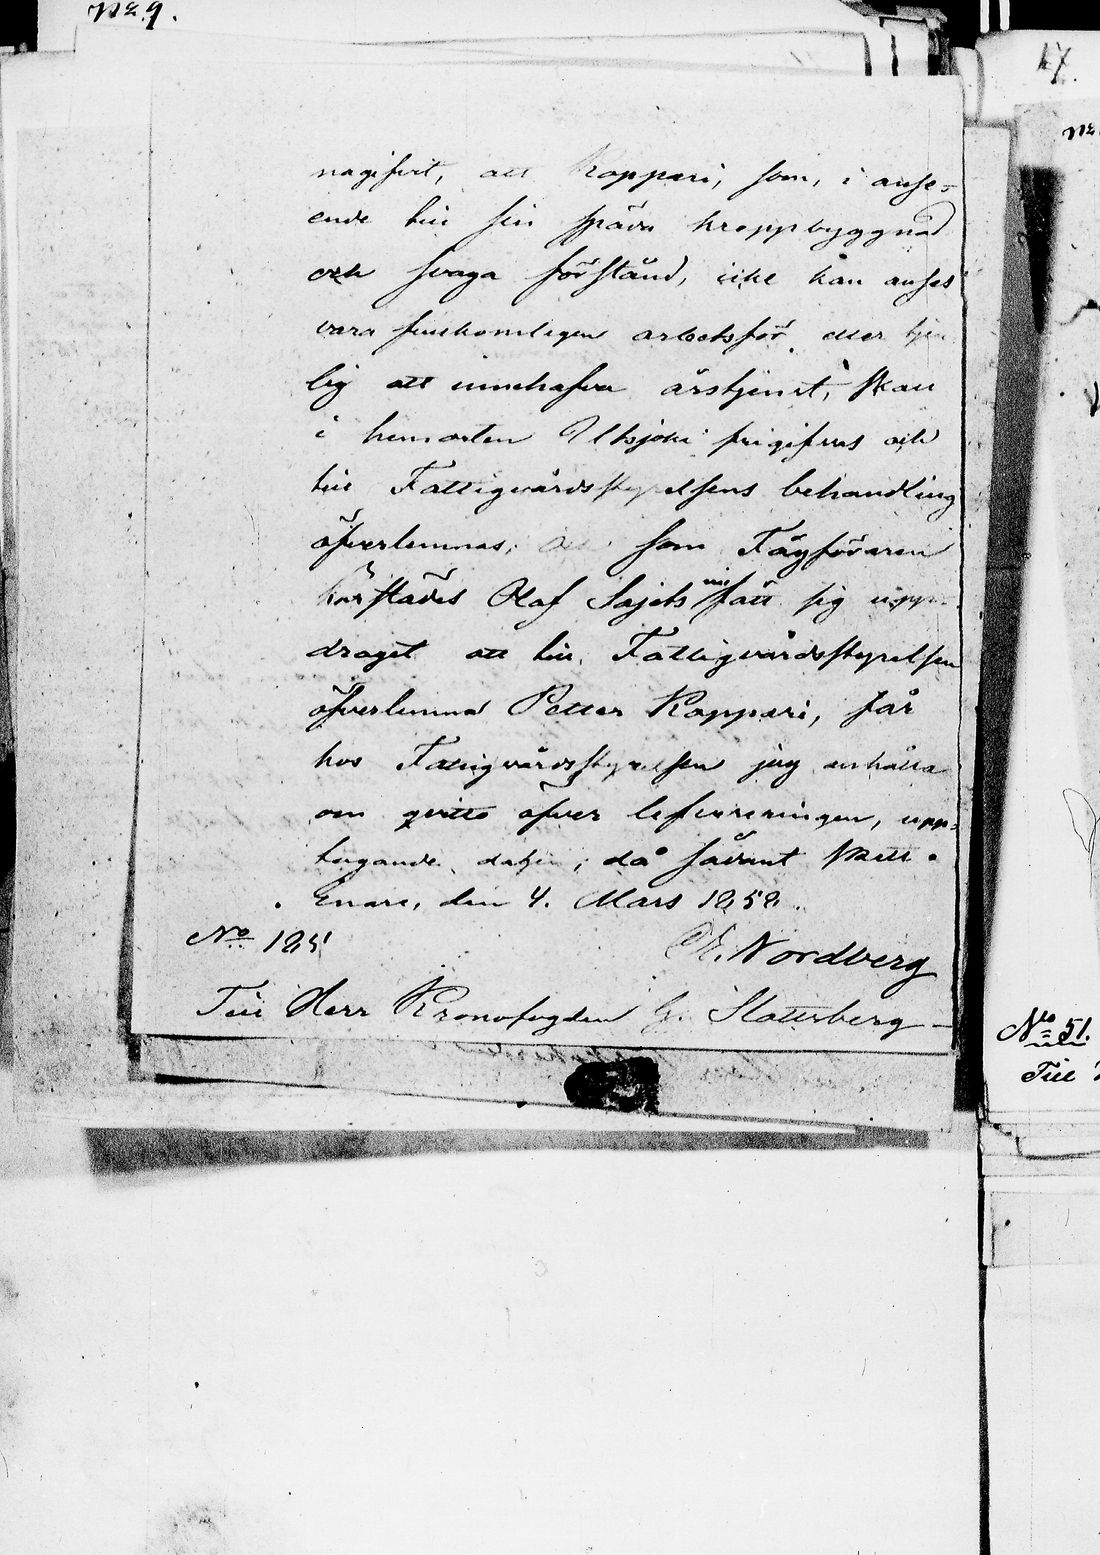 No 9.
nagifvit, att Koppari, som, i anse-
ende till sin späda kroppbyggnad
och svaga förstånd, icke kan anses
vara fullkomligen arbetsför eller
lig att innehafva årstjenst, skall
i hemorten Utsjoki frigifvas och
till Fattigvårdsstyrelsens behandling
öfverlemnas; som Tågföraren
härstädes Olaf Sajets fått sig upp-
draget att till Fattigvårdsstyrelsen
öfverlemna Petter Koppari, får
hos Fattigvårdsstyrelsen jag anhålla
om qvitto öfver lefvereringen, upp-
tagande dagen, då sådant skett.
Enare, den 4. Mars 1858.
No 125
Nordberg
Till Herr Kronofogden G. Slatterberg
17.
No 51.
Till